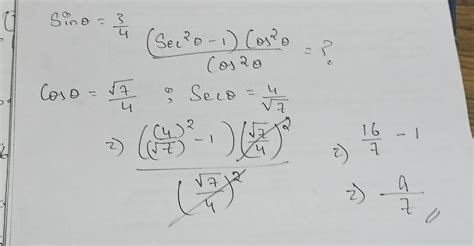 Sinθ = 3/4
(Sec²θ - 1) Cos²θ / Cos²θ = ?
Cosθ = √7/4 ; Secθ = 4/√7
⇒ ((4/√7)² - 1) (√7/4)² / (√7/4)²
⇒ 16/7 - 1
⇒ 9/7